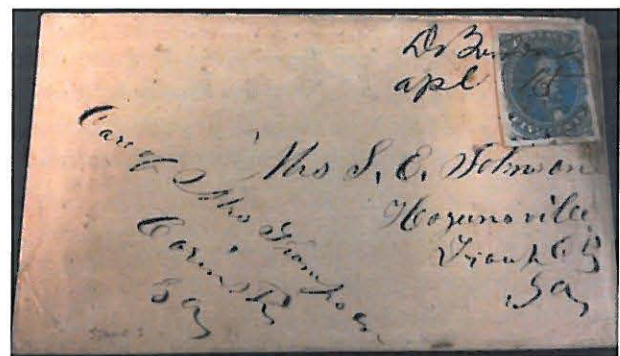 apl 15
Mrs S. E. Johnson
Hogansville
Troup Co
Ga
Care of Mrs
Corinth
Ga